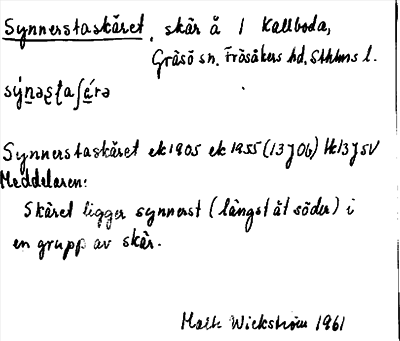 Synnerstaskäret, skär å / Kallboda,
Gräsö sn. Frösåkers hd, Sthlms l.
Synnerstaskäret ek 1905 ek 1955 (13 J 0b) Hc13 J SV
Meddelaren:
Skäret ligger synnerst (längst åt söder) i
en grupp av skär.
Wickström 1961